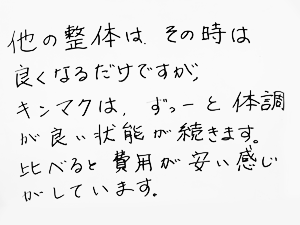 他の整体は、その時は
良くなるだけですが、
キンマクは、ずっーと体調
が良い状態が続きます。
比べると費用が安い感じ
がしています。